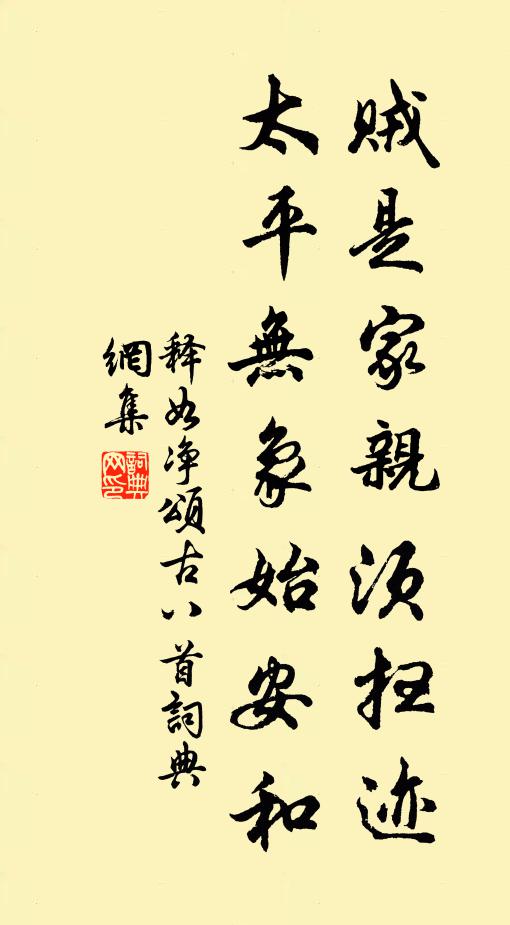 賊是家親須扫迹
太平無象始安和
释如净頌古八首詞典
網集
詞典网印